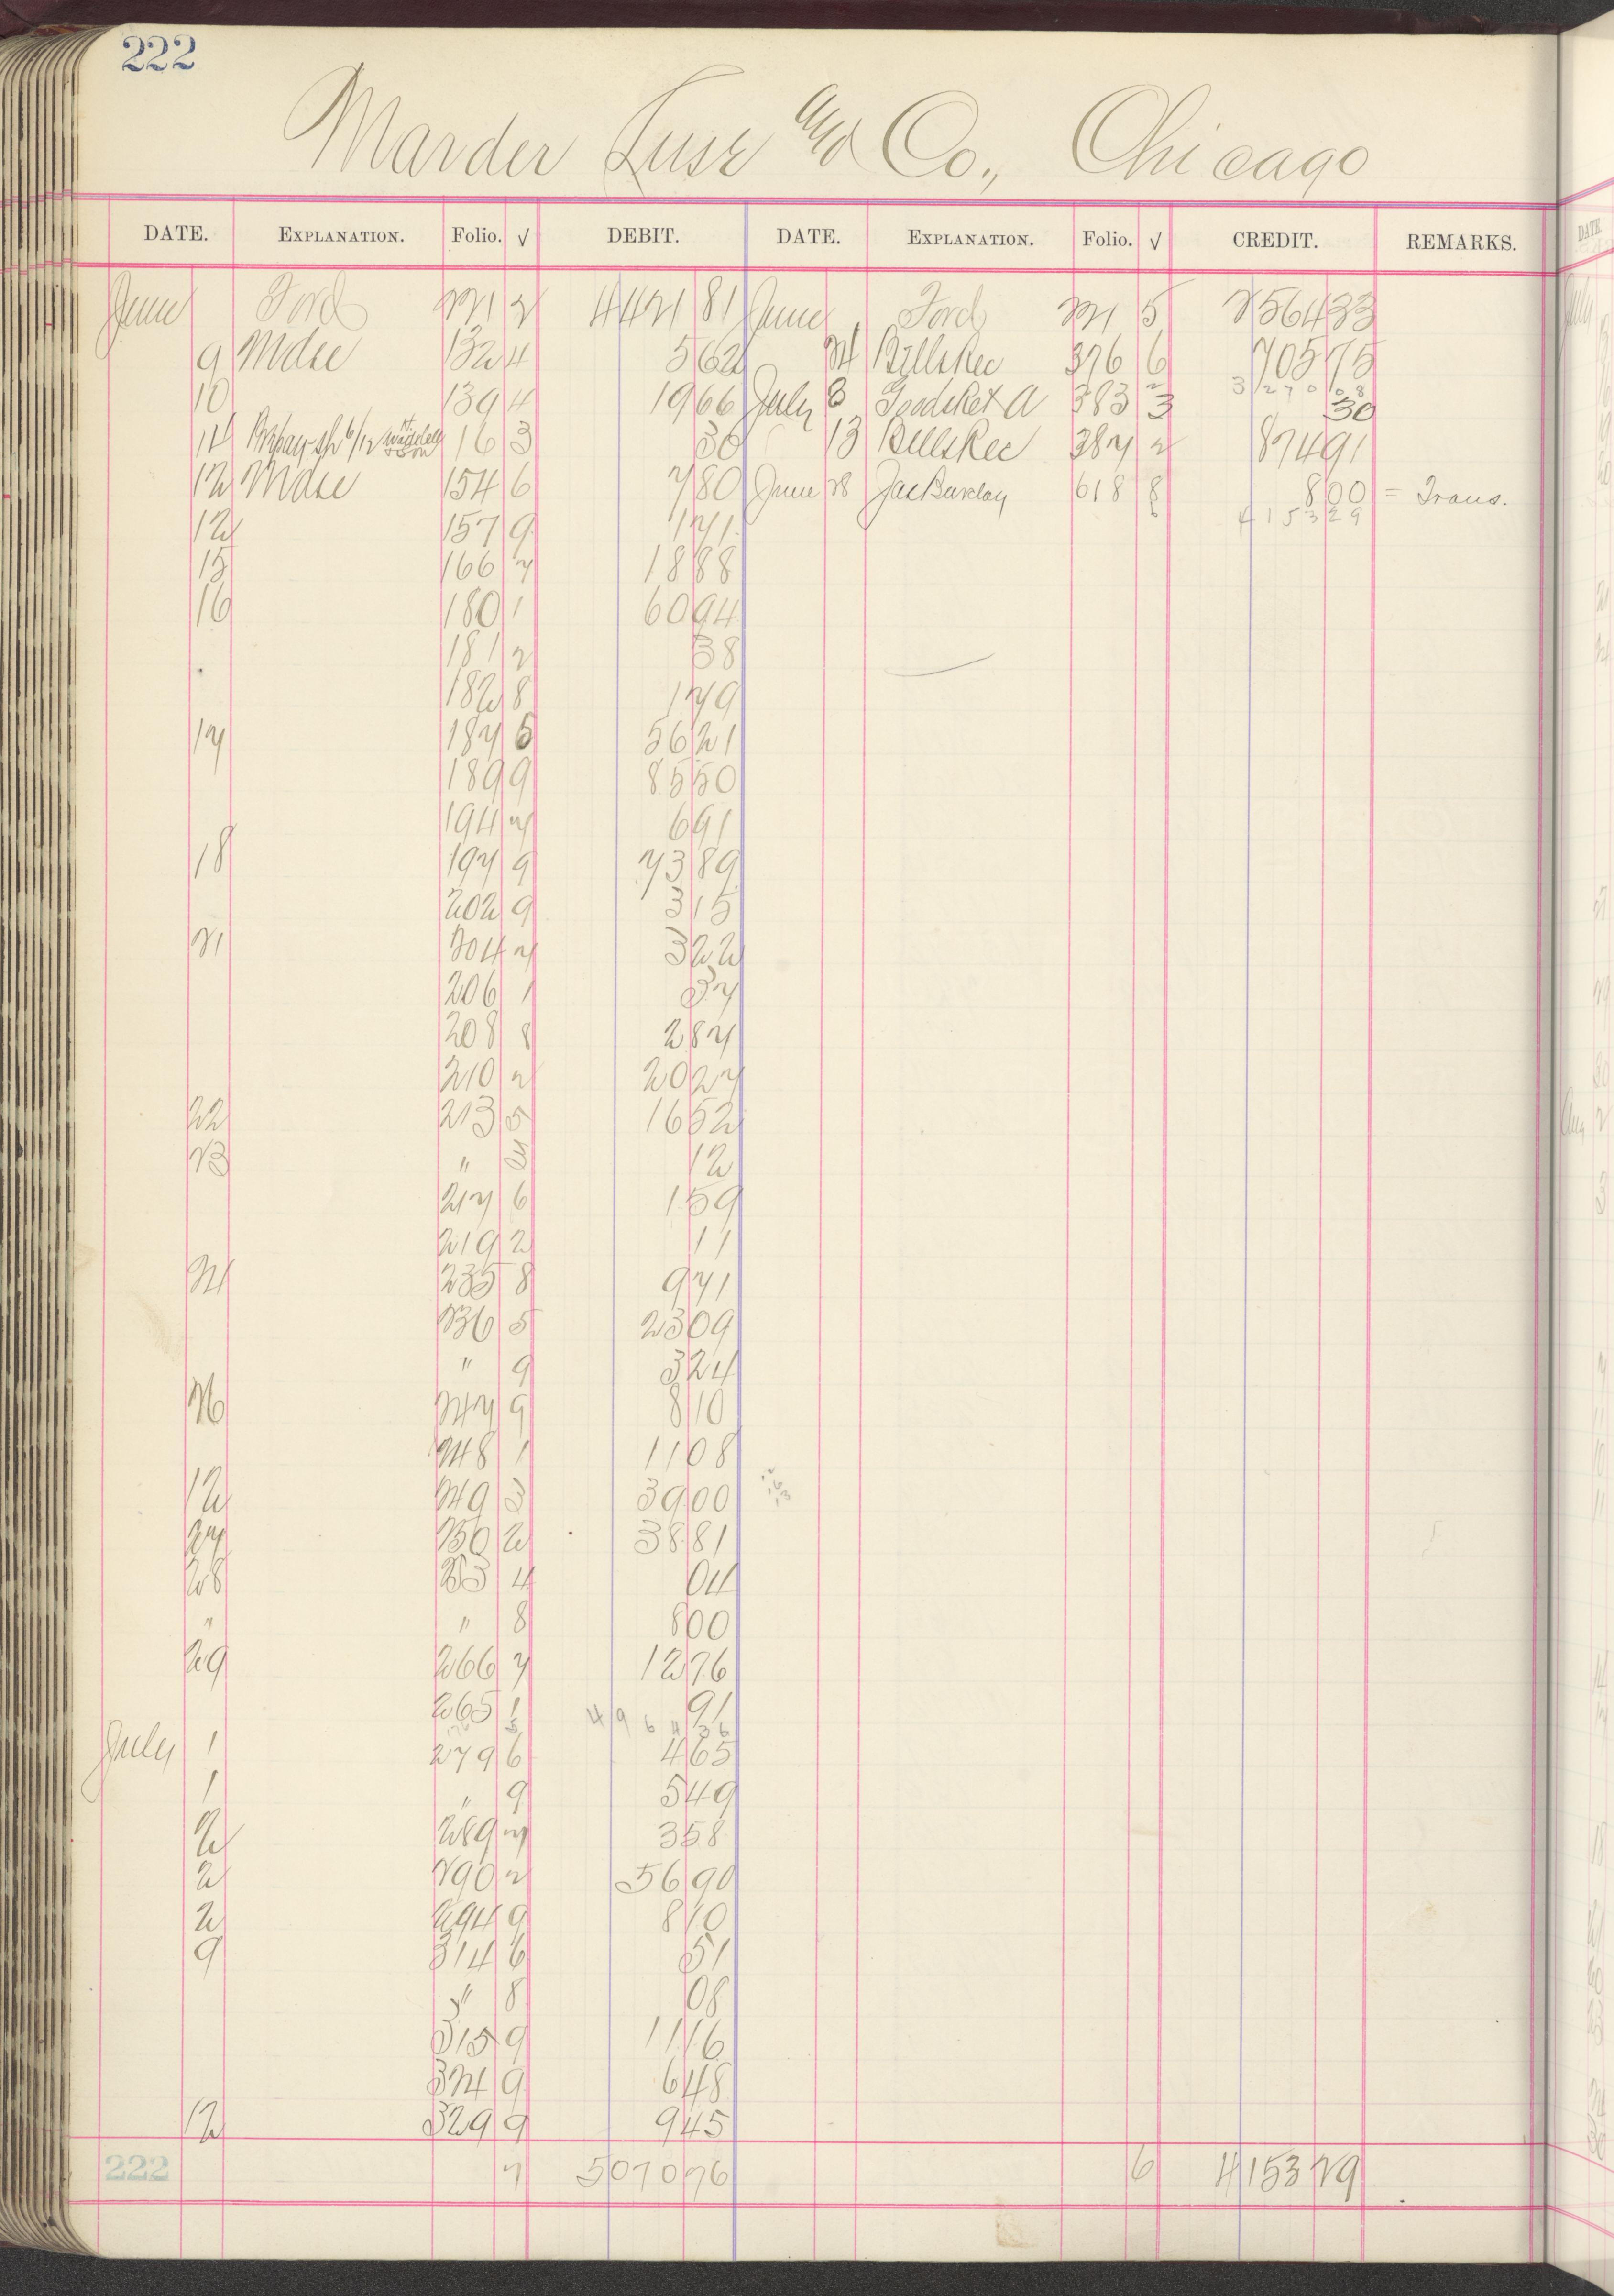 222
Marder Luse and Co., Chicago
DATE. EXPLANATION. Folio. √ DEBIT. DATE. EXPLANATION. Folio. √ CREDIT. REMARKS.
June Ford 2 4421 81 June Ford 5 2564 33
9 Mdse 132 4 5 62 24 Bills Rec 376 6 705 75
10 139 4 19 66 July 8 Goods Ret d 383 3 30
3270 08
11 16 3 30 13 Bills Rec 387 2 874 91
12 Mdse 154 6 7 80 June 28 Jas Barclay 618 8 8 00 = Trans.
4153 29
12 157 9 1 71
15 166 7 18 88
16 180 1 60 94
181 2 38
182 8 1 79
17 187 5 56 21
189 9 85 50
194 7 6 91
18 197 9 73 89
202 9 3 15
21 204 7 3 22
206 1 37
208 8 2 87
210 2 20 27
22 213 5 16 52
23 " 12
217 6 1 59
219 2 11
24 235 8 9 71
236 5 23 09
" 9 3 24
26 247 9 8 10
248 1 11 08
12 249 3 39 00
27 250 2 38 81
28 253 4 04
" " 8 8 00
29 266 7 12 76
265 1 91
July 1 279 6 4 65
1 " 9 5 49
2 289 7 3 58
2 290 2 56 90
2 294 9 8 10
9 314 6 51
" 8 08
315 9 11 16
324 9 6 48
12 329 9 9 45
222 7 5070 76 6 4153 29